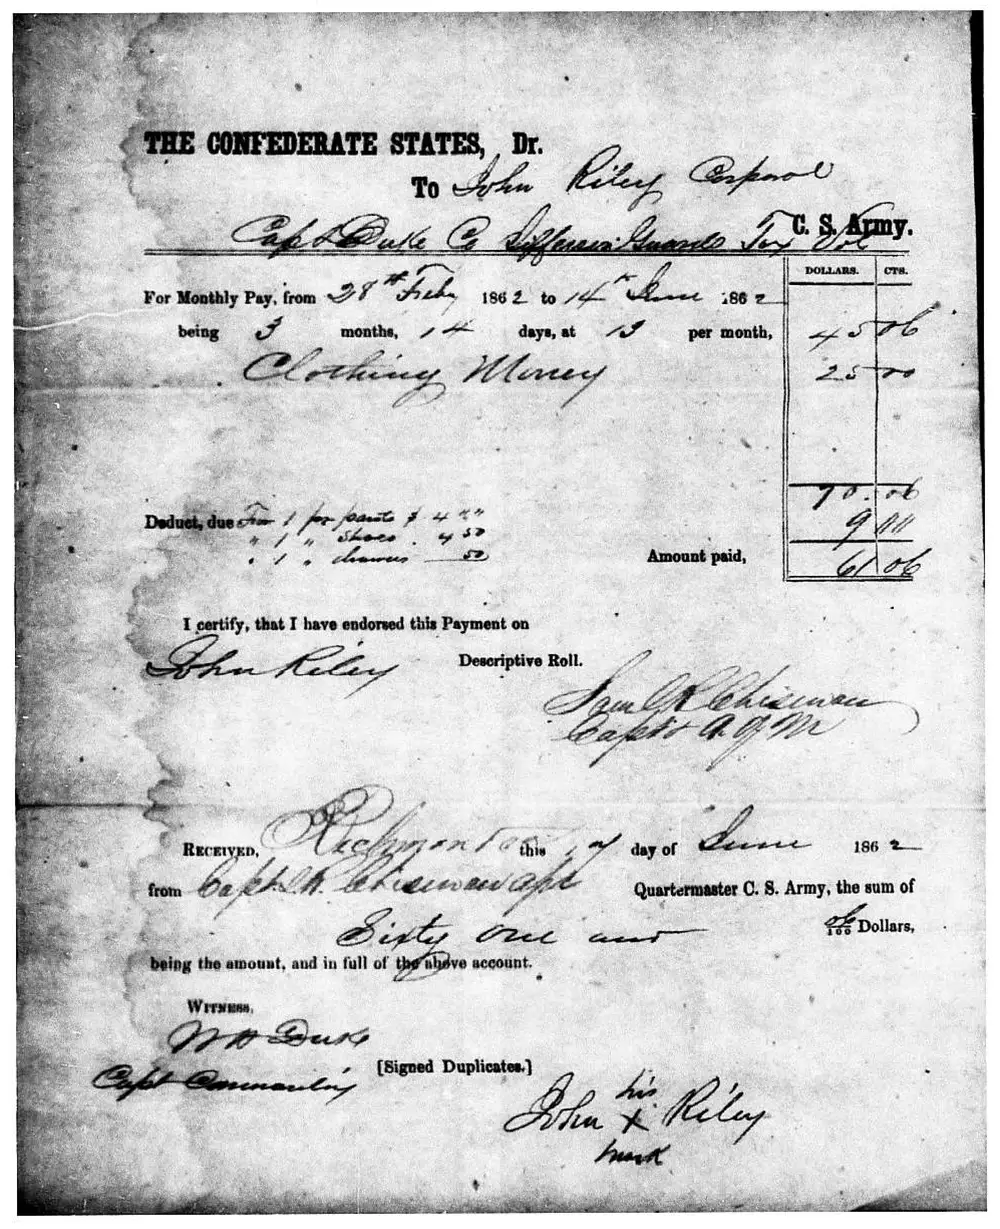 THE CONFEDERATE STATES, Dr.
To John Riley Corporal
Capt Duke Co Jefferson Guards Tex Vol C. S. Army.
DOLLARS. CTS.
For Monthly Pay, from 28th Feby 1862 to 14th June 1862
being 3 months, 14 days, at 13 per month, 45 06
Clothing Money 25 00
70.06
Deduct, due For 1 pr pants $ 4 "" 9 00
" 1 " Shoes . 4 50
" 1 " drawers 50
Amount paid, 61 06
I certify, that I have endorsed this Payment on
John Riley Descriptive Roll.
Saml R Chisman
Capt & A. Q M
RECEIVED, Richmond this day of June 1862
from Capt R. Chisman Quartermaster C. S. Army, the sum of
Sixty one and 06/100 Dollars,
being the amount, and in full of the above account.
WITNESS,
W H Duke
Capt Commanding
[Signed Duplicates.]
his
John X Riley
mark